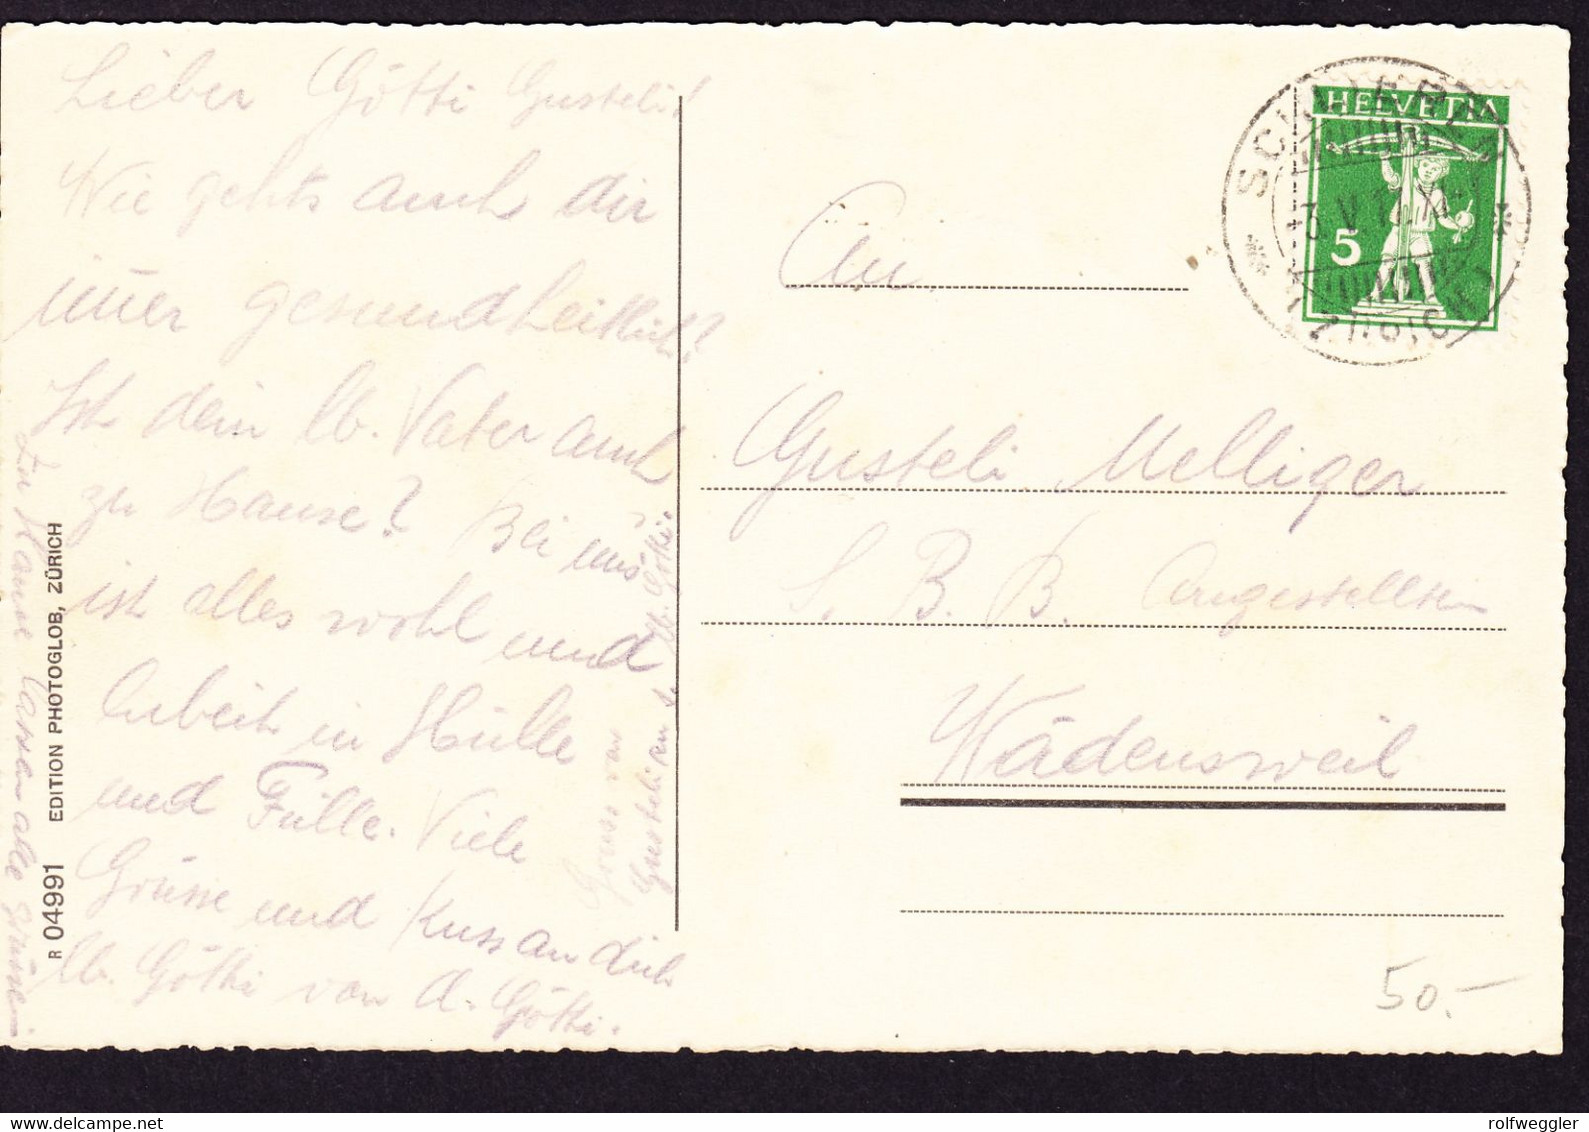 Lieber Götti Gusteli!
Wie gehts auch dir
imer gesundheitlich?
Ist dein lb. Vater auch
zu Hause? Bei uns
ist alles wohl und
Arbeit in Hülle
und Fülle. Viele
Grüsse und Kuss an dich
lb. Götti von d. Götti.
Gruss von
Gusteli an d. lb. Götti.
lassen alle grüssen
R 04991 EDITION PHOTOGLOB, ZÜRICH
HELVETIA
5
An
Gusteli Melliger
S. B. B. Angestellten
Wädensweil
50.-
delcampe.net
rolfweggler